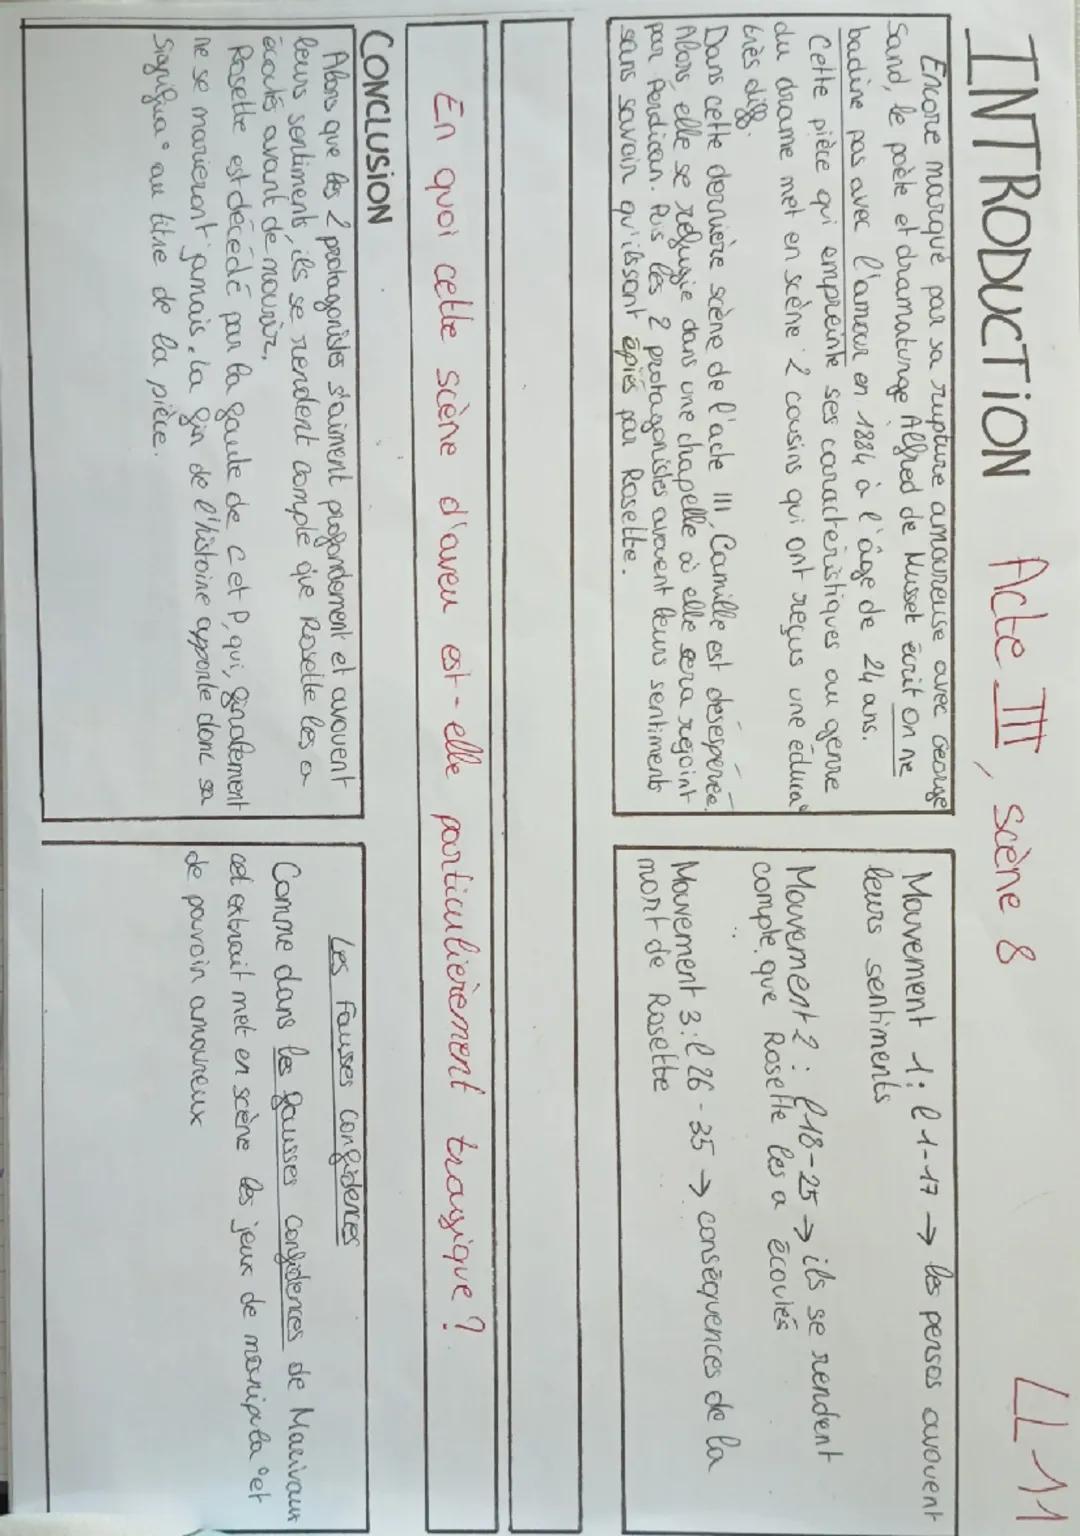 INTRODUCTION Acte III, scène 8
LL 11
Encore marqué par sa rupture amoureuse avec George
Sand, le poète et dramaturge Alfred de Musset écrit On ne
badine pas avec l'amour en 1884 à l'âge de 24 ans.
Cette pièce qui empreinte ses caractéristiques au genre
du drame met en scène 2 cousins qui ont reçus une éduca°
très diff.
Dans cette dernière scène de l'acte III, Camille est désespérée.
Alors, elle se réfugie dans une chapelle où elle sera rejoint
par Perdican. Puis les 2 protagonistes avouent leurs sentiments
sans savoir qu'ils sont épiés par Rosette.
Mouvement 1: l 1-17 → les persos avouent
leurs sentiments
Mouvement 2: l 18-25 → ils se rendent
compte que Rosette les a écoutés
Mouvement 3: l 26-35 → conséquences de la
mort de Rosette
En quoi cette scène d'aveu est-elle particulièrement tragique ?
CONCLUSION
Alors que les 2 protagonistes s'aiment profondément et avouent
leurs sentiments, ils se rendent compte que Rosette les a
écoutés avant de mourir.
Rosette est décédé par la faute de C et P, qui, finalement
ne se marieront jamais. La fin de l'histoire apporte donc sa
significa° au titre de la pièce.
Les Fausses Confidences
Comme dans les fausses confidences de Marivaux
cet extrait met en scène les jeux de manipula° et
de pouvoir amoureux